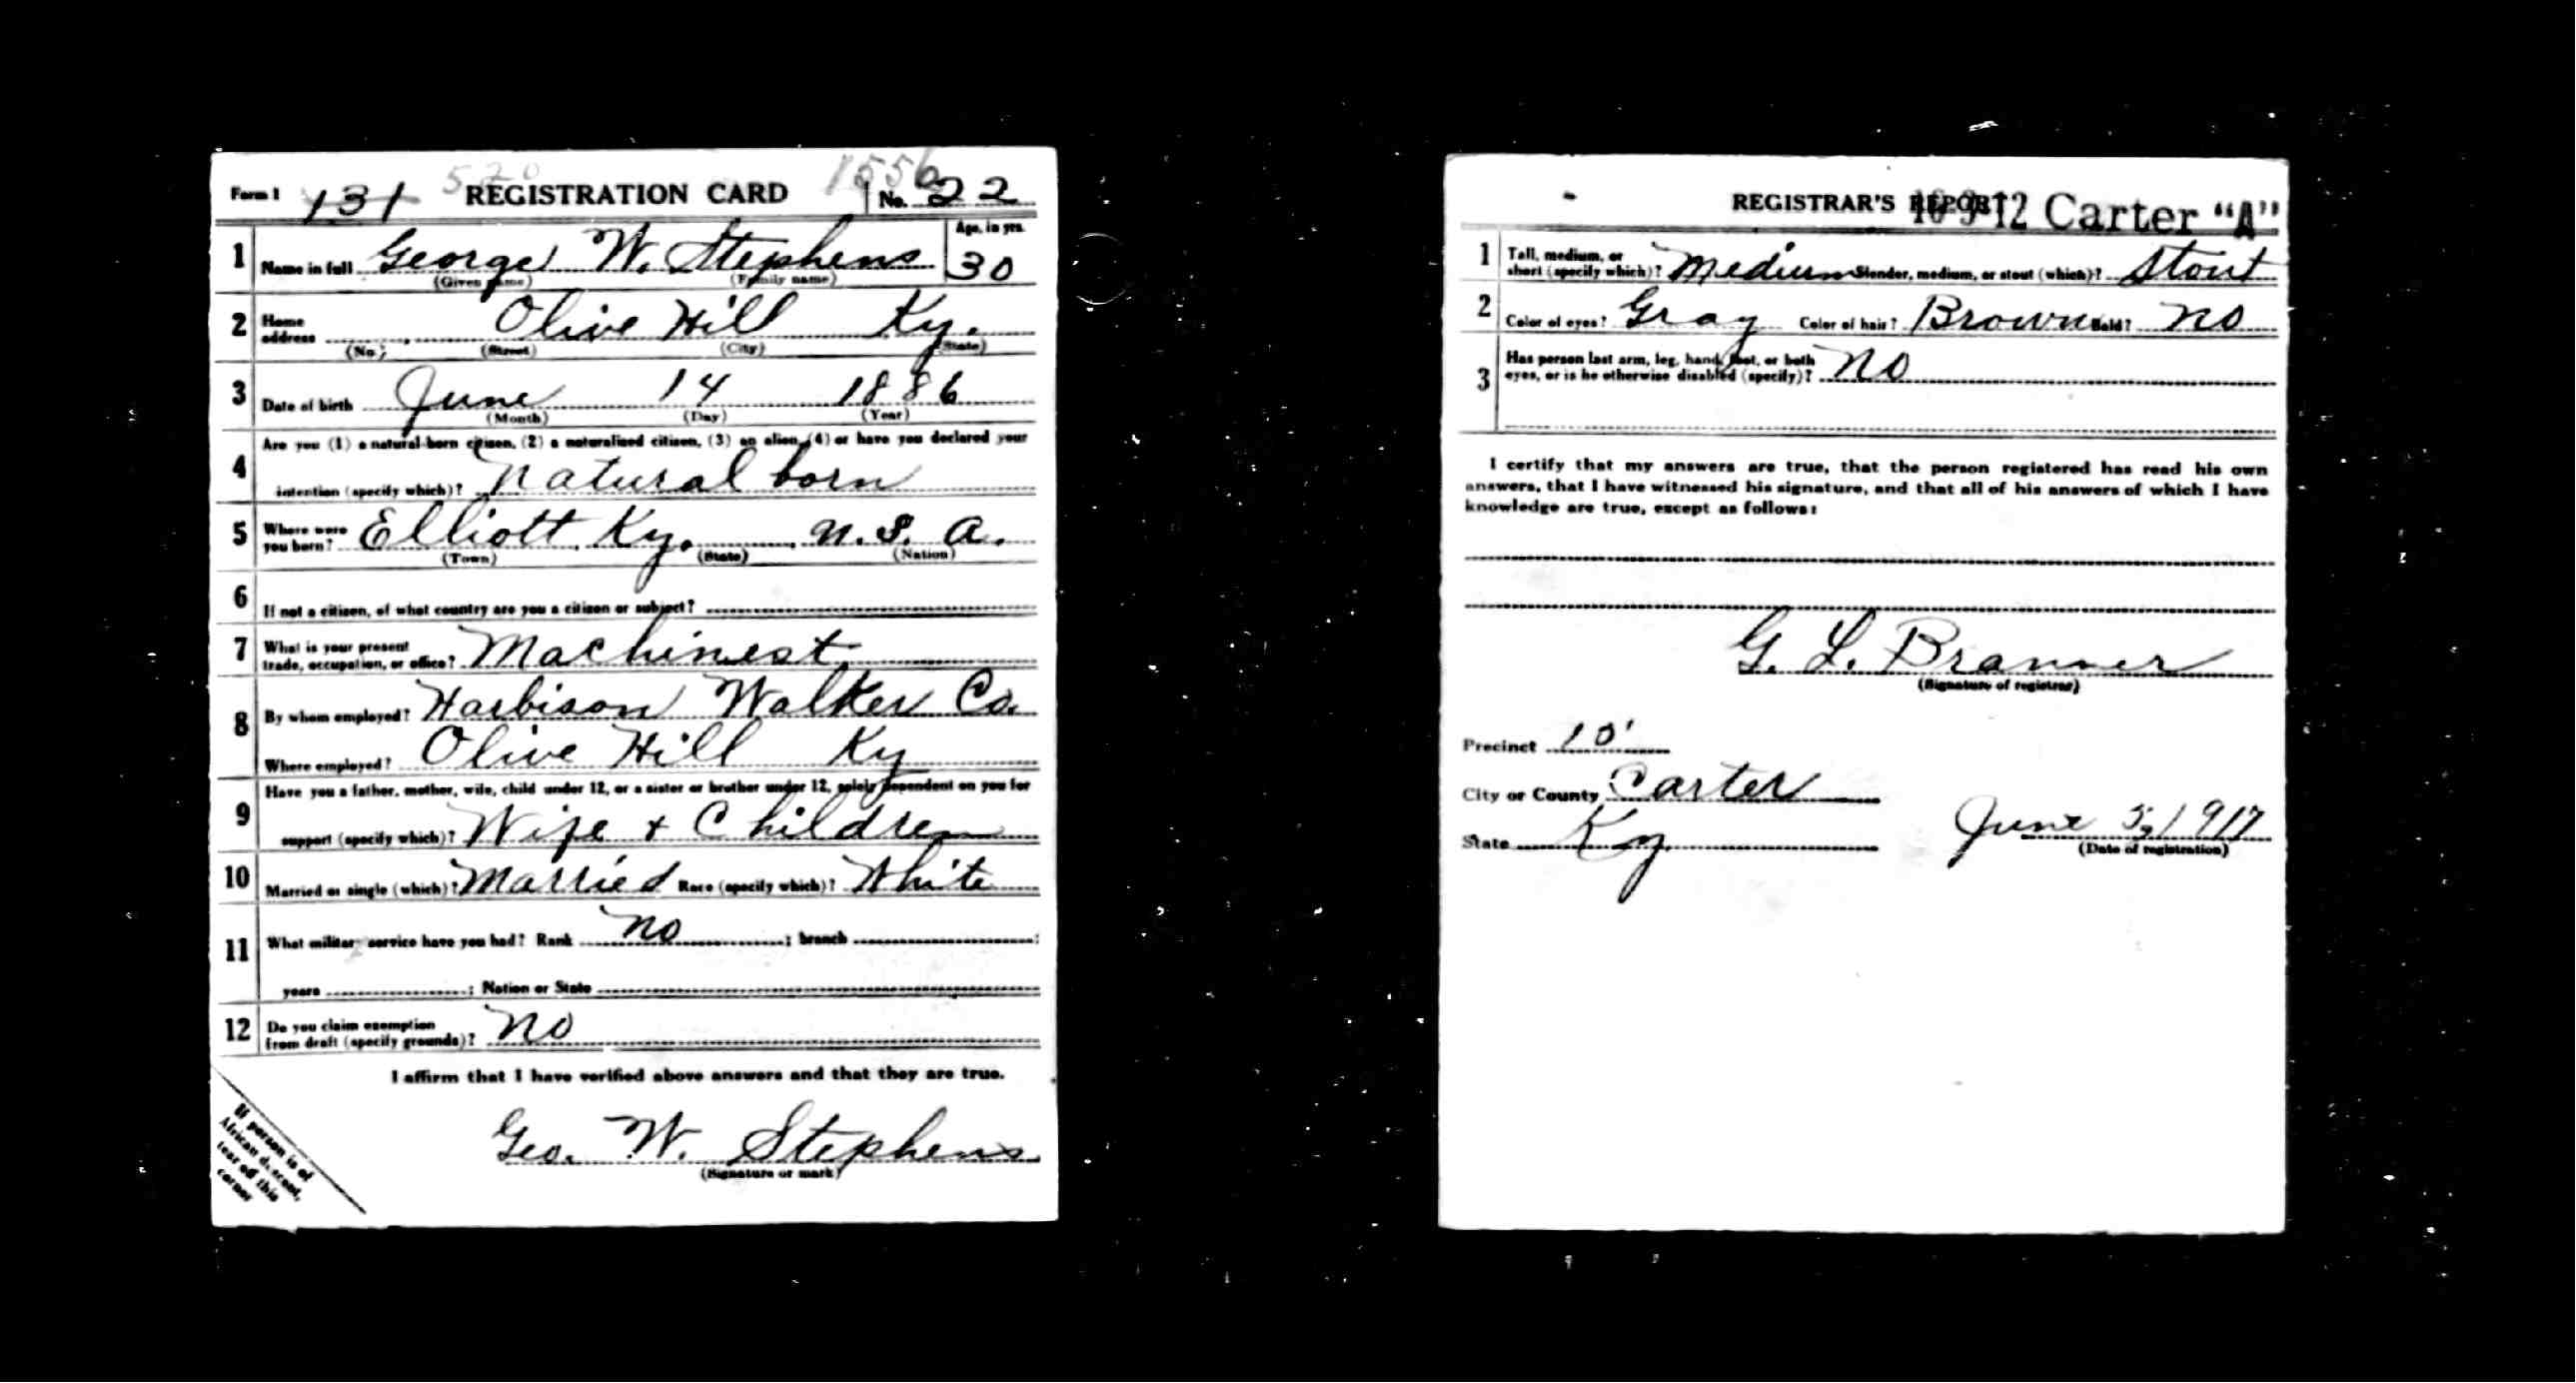 520 1556
Form 1 131 REGISTRATION CARD No. 22
1 Name in full George W. Stephens Age, in yrs. 30
(Given name) (Family name)
2 Home address Olive Hill Ky.
(No.) (Street) (City) (State)
3 Date of birth June 14 1886
(Month) (Day) (Year)
4 Are you (1) a natural-born citizen, (2) a naturalized citizen, (3) an alien, (4) or have you declared your
intention (specify which)? Natural born
5 Where were you born? Elliott Ky. U.S.A.
(Town) (State) (Nation)
6 If not a citizen, of what country are you a citizen or subject?
7 What is your present trade, occupation, or office? Machinest
8 By whom employed? Harbison Walker Co.
Where employed? Olive Hill Ky
9 Have you a father, mother, wife, child under 12, or a sister or brother under 12, solely dependent on you for
support (specify which)? Wife + Children
10 Married or single (which)? Married Race (specify which)? White
11 What military service have you had? Rank no ; branch ;
years ; Nation or State
12 Do you claim exemption from draft (specify grounds)? no
I affirm that I have verified above answers and that they are true.
Geo. W. Stephens
(Signature or mark)
If person is of
African descent,
tear off this
corner
REGISTRAR'S REPORT Carter "A"
1 Tall, medium, or short (specify which)? Medium Slender, medium, or stout (which)? Stout
2 Color of eyes? Gray Color of hair? Brown Bald? no
3 Has person lost arm, leg, hand, foot, or both eyes, or is he otherwise disabled (specify)? no
I certify that my answers are true, that the person registered has read his own
answers, that I have witnessed his signature, and that all of his answers of which I have
knowledge are true, except as follows:
G. L. Branner
(Signature of registrar)
Precinct 10
City or County Carter
State Ky. June 5, 1917
(Date of registration)